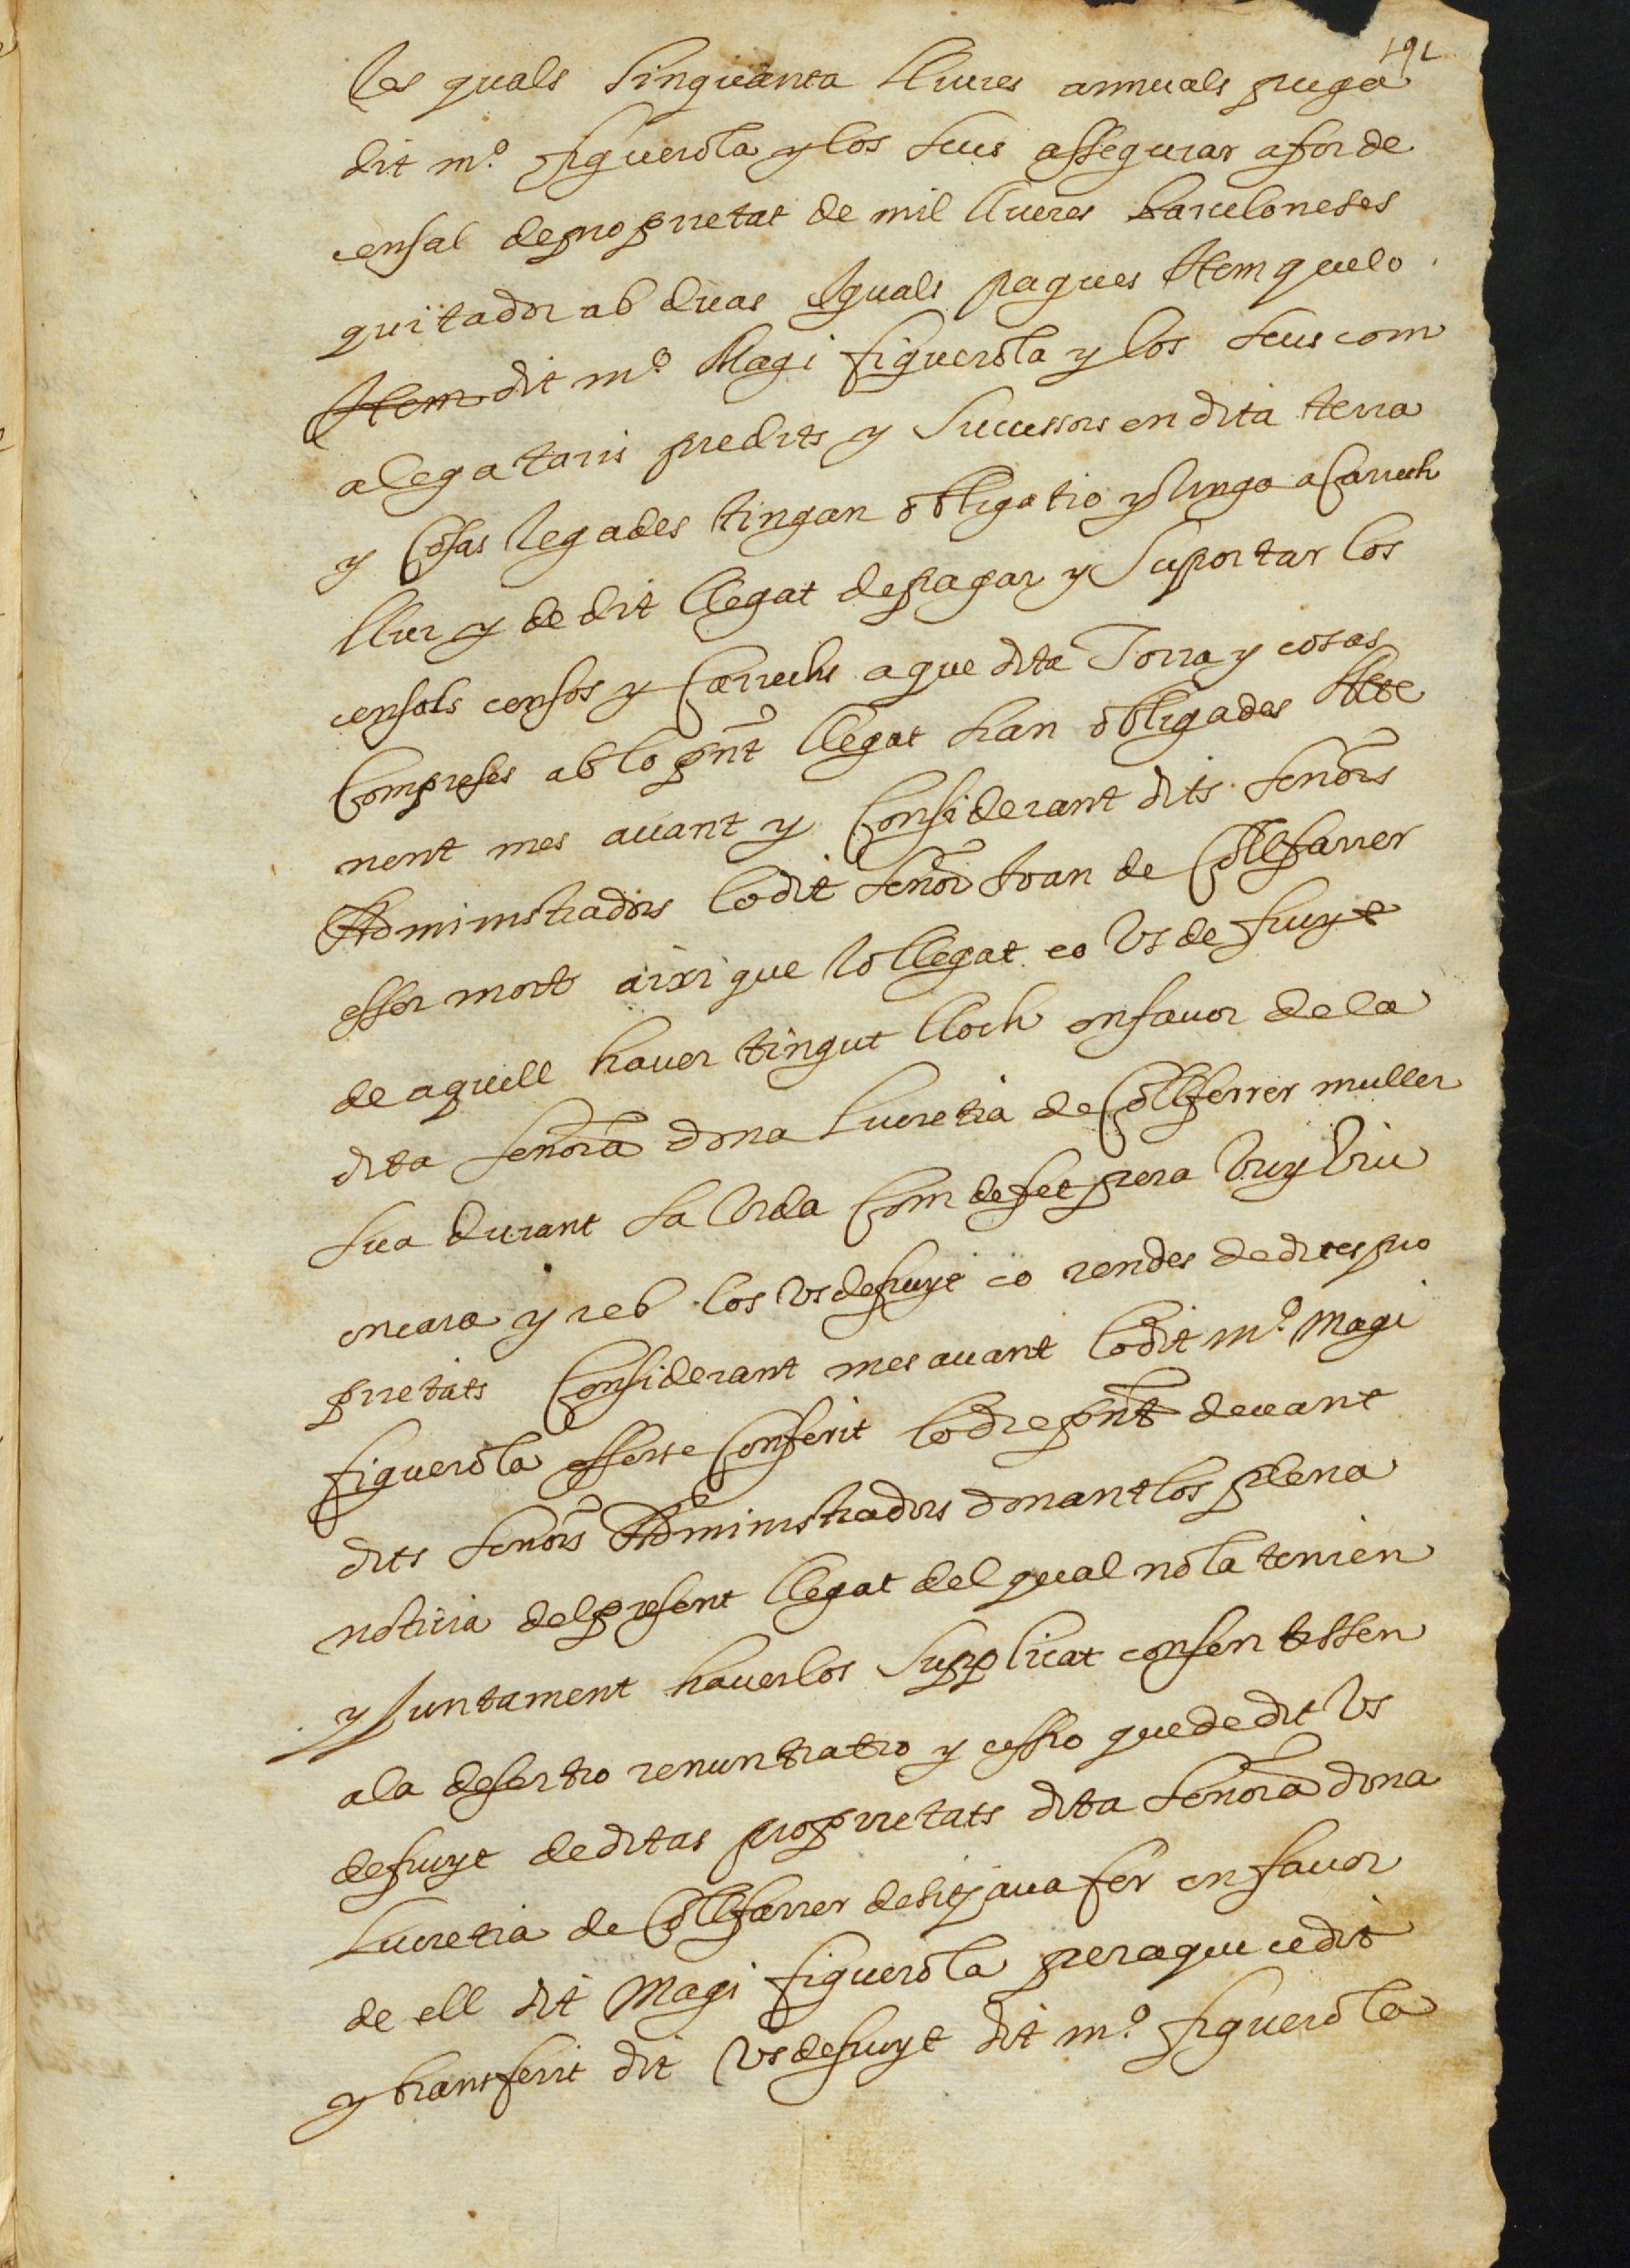 191
les quals sinquanta lliures annuals puga
dit m.º figuerola y los seus assegurar a for de
censal de proprietat de mil lliures barceloneses
quitador ab duas iguals pagues Item que lo
Item dit m.º Magi figuerola y los seus com
a legataris predits y successors en dita terra
y cosas legades tingan obligatio y vinga a carrech
llur y de dit llegat de pagar y suportar los
censals censos y carrechs a que dita Torra y cosas
compreses ab lo pnt llegat han obligades Atte
nent mes avant y considerant dits senors
Administradors lo dit senor Joan de Collfarrer
esser mort aixi que lo llegat eo us de fruyt
de aquell haver tingut lloch en favor de la
dita senora dona Lucretia de Collferrer muller
sua durant sa vida com de fet pera vuy viu
encara y reb los usdefruyt eo rendes de dites pro
prietats considerant mes avant lo dit m.º Magi
figuerola esserse conferit lo die pnt devant
dits senors Administradors donantlos plena
noticia del present llegat del qual no la tenien
y juntament haverlos supplicat consentissen
a la desertio renuntiatio y cessio que de dit us
defruyt de ditas proprietats dita senora dona
Lucretia de Collfarrer desitjava fer en favor
de ell dit Magi figuerola pera que cedit
y transferit dit usdefruyt dit m.º figuerola